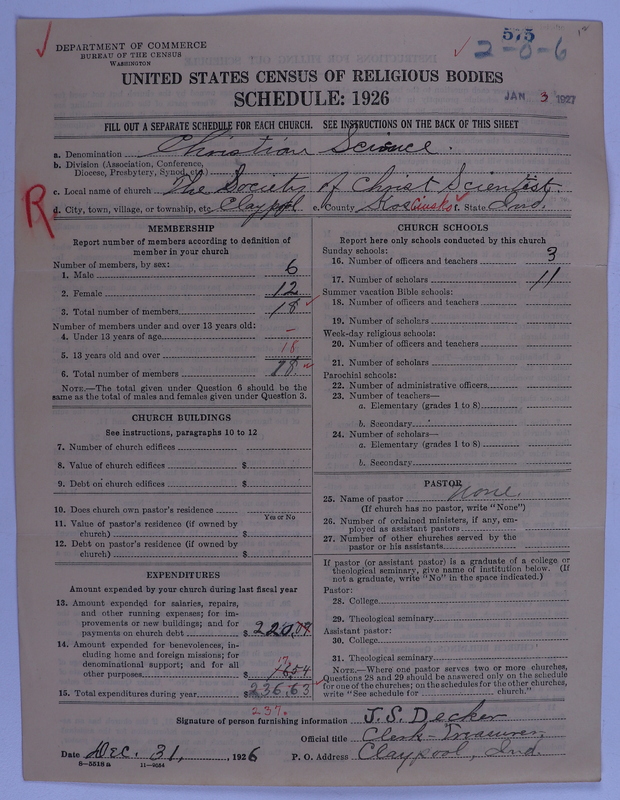 575
2-0-6
DEPARTMENT OF COMMERCE
BUREAU OF THE CENSUS
WASHINGTON
UNITED STATES CENSUS OF RELIGIOUS BODIES
SCHEDULE: 1926
JAN 3 1927
FILL OUT A SEPARATE SCHEDULE FOR EACH CHURCH. SEE INSTRUCTIONS ON THE BACK OF THIS SHEET
a. Denomination Christian Science.
b. Division (Association, Conference, Diocese, Presbytery, Synod, etc.)
c. Local name of church The Society of Christ Scientist
R
d. City, town, village, or township, etc. Claypool e. County Kosciusko f. State Ind.
MEMBERSHIP
Report number of members according to definition of
member in your church
Number of members, by sex:
1. Male 6
2. Female 12
3. Total number of members 18
Number of members under and over 13 years old:
4. Under 13 years of age –
5. 13 years old and over 18
6. Total number of members 18
NOTE.—The total given under Question 6 should be the
same as the total of males and females given under Question 3.
CHURCH BUILDINGS
See instructions, paragraphs 10 to 12
7. Number of church edifices
8. Value of church edifices $
9. Debt on church edifices $
10. Does church own pastor's residence
Yes or No
11. Value of pastor's residence (if owned by
church) $
12. Debt on pastor's residence (if owned by
church) $
EXPENDITURES
Amount expended by your church during last fiscal year
13. Amount expended for salaries, repairs,
and other running expenses; for im-
provements or new buildings; and for
payments on church debt $ 220.09
14. Amount expended for benevolences, in-
cluding home and foreign missions; for
denominational support; and for all
other purposes $ 17 1654
15. Total expenditures during year $ 236.63
237.
CHURCH SCHOOLS
Report here only schools conducted by this church
Sunday schools:
16. Number of officers and teachers 3
17. Number of scholars 11
Summer vacation Bible schools:
18. Number of officers and teachers
19. Number of scholars
Week-day religious schools:
20. Number of officers and teachers
21. Number of scholars
Parochial schools:
22. Number of administrative officers
23. Number of teachers—
a. Elementary (grades 1 to 8)
b. Secondary
24. Number of scholars—
a. Elementary (grades 1 to 8)
b. Secondary
PASTOR
25. Name of pastor none.
(If church has no pastor, write "None")
26. Number of ordained ministers, if any, em-
ployed as assistant pastors
27. Number of other churches served by the
pastor or his assistants
If pastor (or assistant pastor) is a graduate of a college or
theological seminary, give name of institution below. (If
not a graduate, write "No" in the space indicated.)
Pastor:
28. College
29. Theological seminary
Assistant pastor:
30. College
31. Theological seminary
NOTE.—Where one pastor serves two or more churches,
Questions 28 and 29 should be answered only on the schedule
for one of the churches; on the schedules for the other churches,
write "See schedule for church."
Signature of person furnishing information J. S. Decker
Official title Clerk-Treasurer,
Date Dec. 31, , 1926 P. O. Address Claypool, Ind.
8—5518 a 11—9554